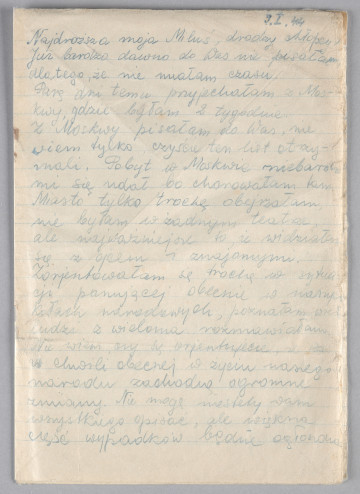 9.X.44
Najdroższa moja Miluś, drodzy chłopcy
Już bardzo dawno do Was nie pisałam
dlatego, że nie miałam czasu.
Parę dni temu przyjechałam z Mos-
kwy, gdzie byłam 2 tygodnie
Z Moskwy pisałam do Was, nie
wiem tylko czyście ten list otrzy-
mali. Pobyt w Moskwie niebardzo
mi się udał bo chorowałam tam
Miasto tylko trochę obejrzałam
nie byłam w żadnym teatrze
ale najważniejsze to, że widziałam
się z ojcem i znajomymi.
Zorjentowałam się trochę w sytua-
cji panującej obecnie w naszych
kołach narodowych, poznałam
ludzi z wieloma rozmawiałam
się orjentujecie, że
w chwili obecnej w życiu naszego
narodu zachodzą ogromne
zmiany. Nie mogę niestety Wam
wszystkiego opisać, ale większa
część wypadków będzie